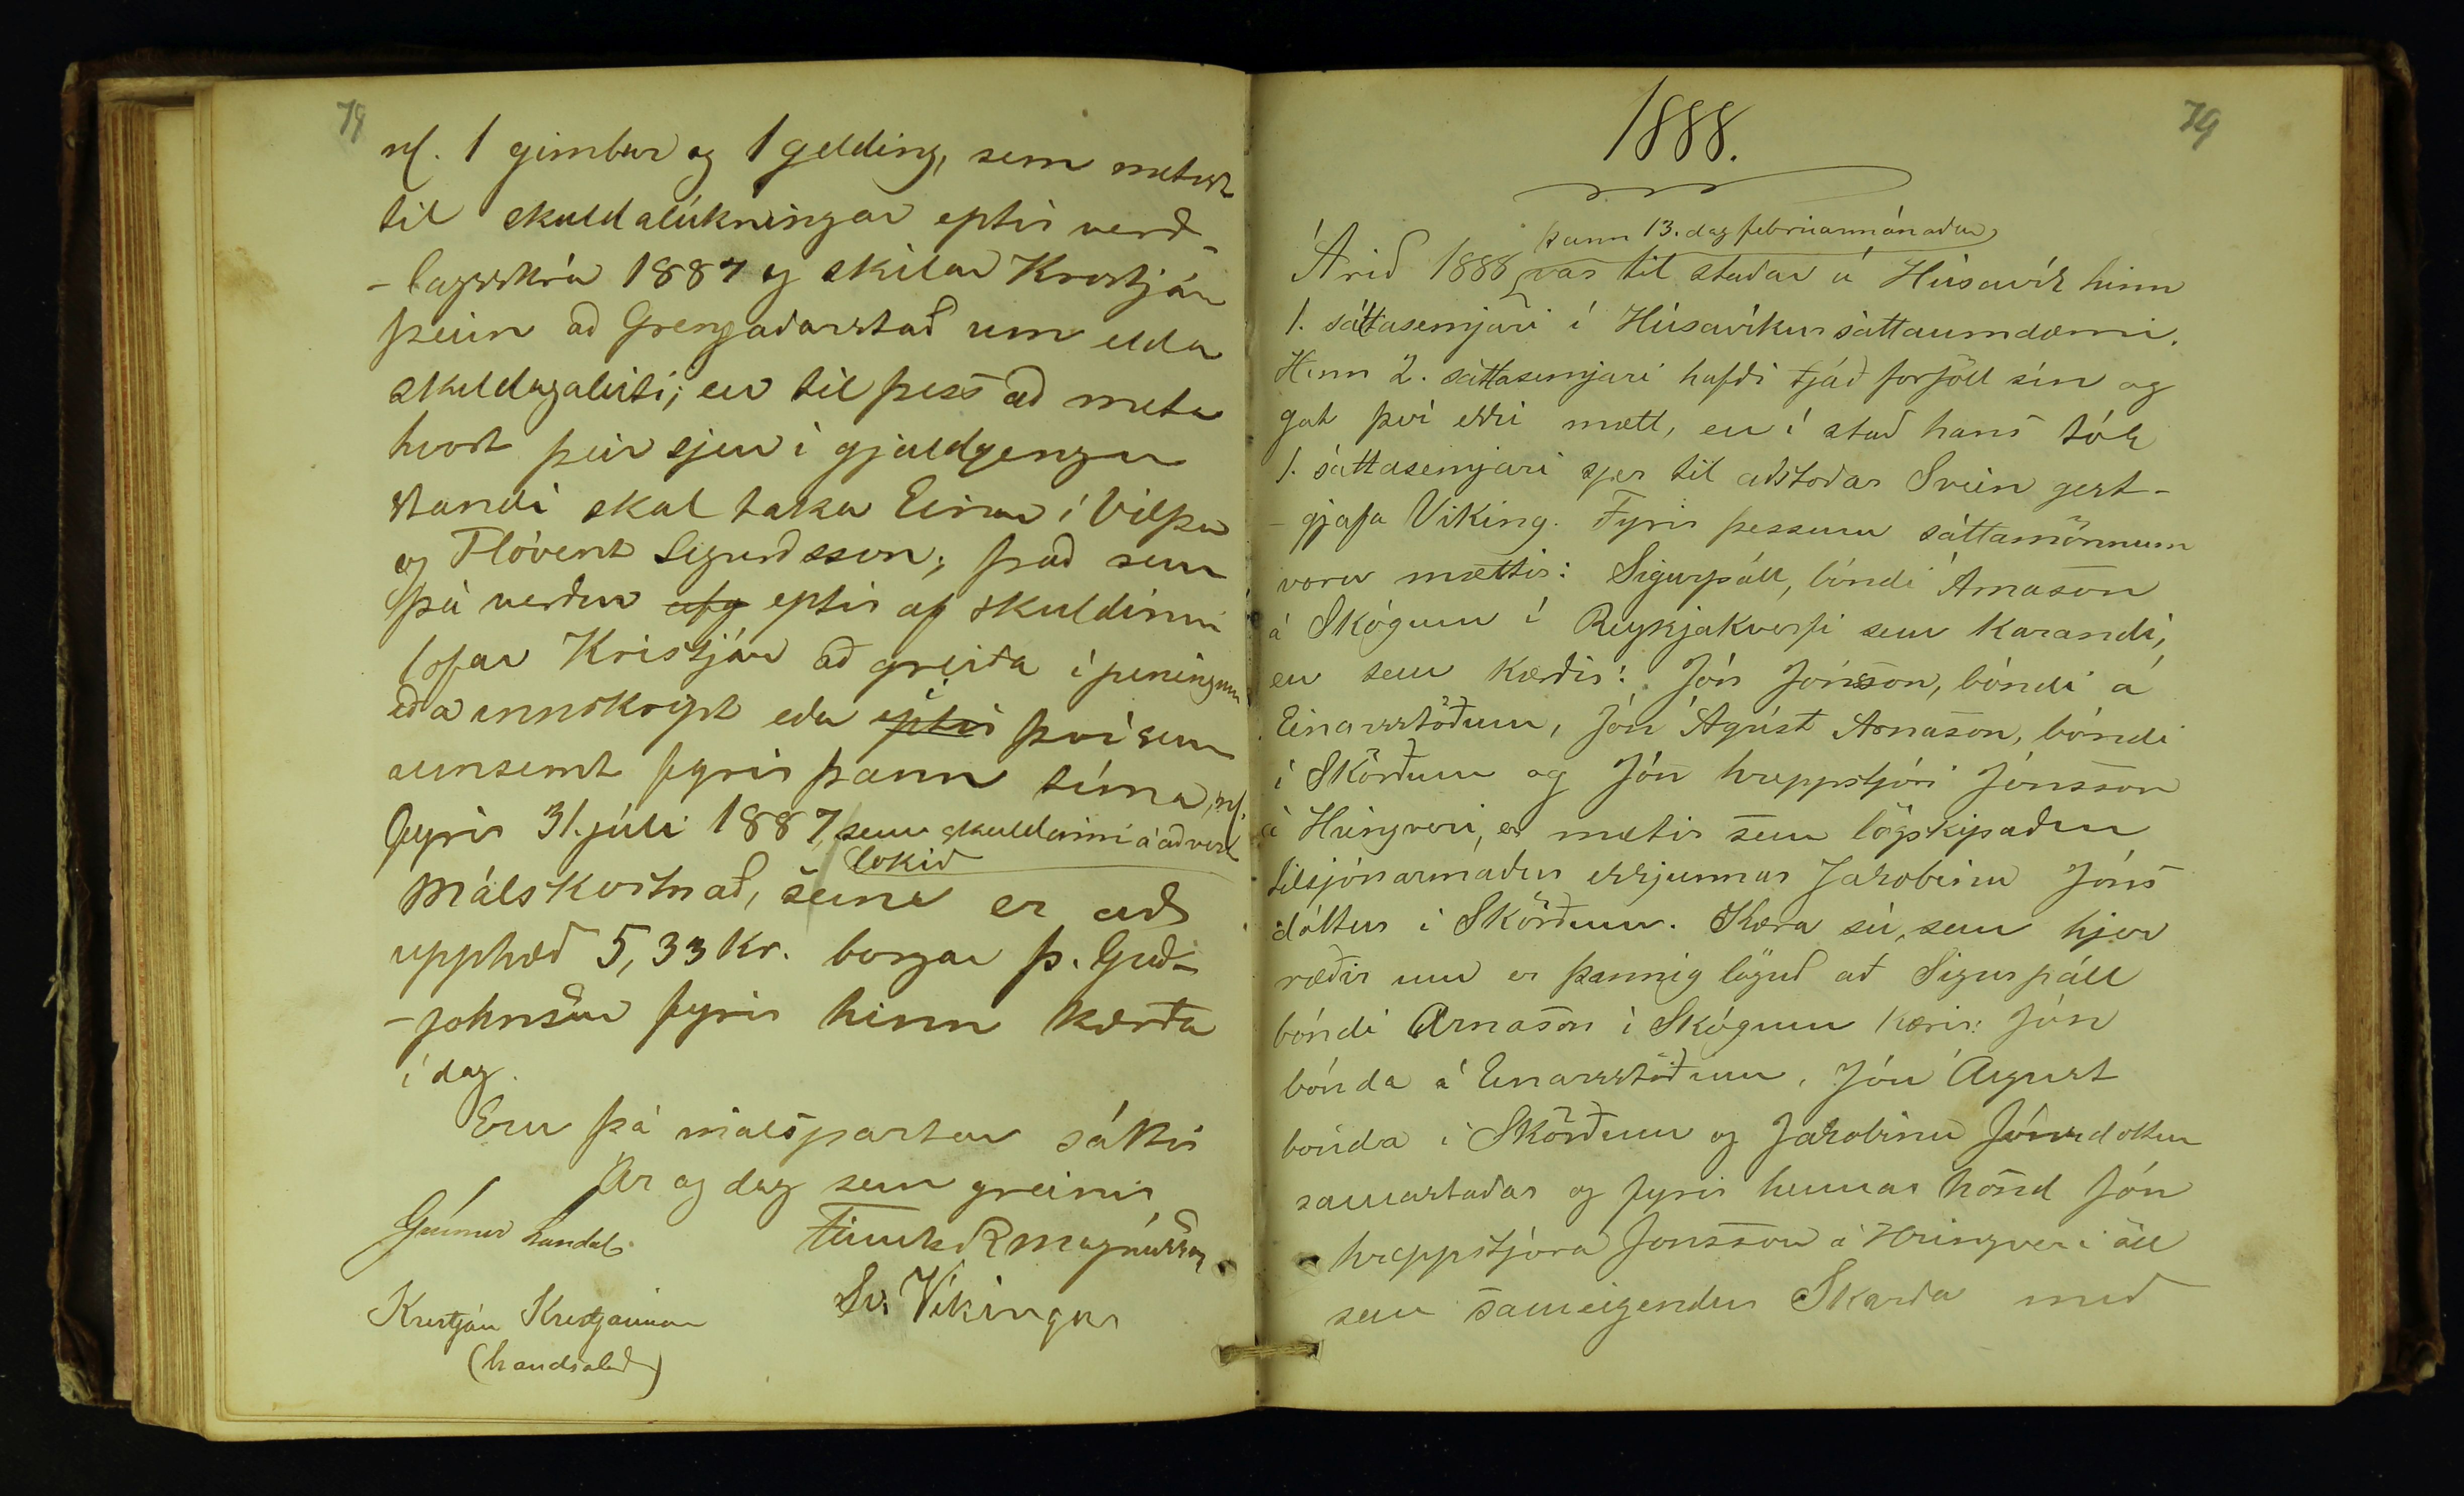 78
nl. 1 gimbur og 1 gelding, sem metust
til skuldalúkningar eptir verð-
-lagsskrá 1887 og skilar Kristján
þeim að Grenjaðarstað um
skuldagaliti; en til þess að meta
hvort þeir sjeu í gjaldgengu
standi skal taka Einar í Vilpu
og Flóvent Sigurðsson; það sem
þá verður afg eptir af skuldinni
lofar Kristján að greiða í peningum
eða innskript eða eptir því sem
um semt fyrir þann tíma, nl.
fyrir 31. júli 1887, sem skuldinni á að vera
lokið
Málskostnað, sem er að
upphæð 5,33 Kr. borgar Þ. Guð-
-johnsen fyrir hinn kærða
í dag.
Eru þá málspartar sáttir
Ár og dag sem greinir
Grímur Laxdal Finnb. R Magnússon
Kristján Kristjánsson Sv. Víkingur
(handsalað)
79
1888.
þann 13. dag febrúarmánaðar
Árið 1888 var til staðar á Húsavík hinn
1. sáttasemjari í Húsavíkursáttaumdæmi.
Hinn 2. sáttasemjari hafði tjáð forföll sín og
gat því ekki mætt, en í stað hans tók
1. sáttasemjari sjer til aðstoðar Svein gest-
-gjafa Viking. Fyrir þessum sáttamönnum
voru mættir: Sigurpáll, bóndi Árnason
á Skógum í Reykjakverfi sem kærandi,
en sem kærðir: Jón Jónsson, bóndi á
Einarsstöðum, Jón Ágúst Árnason, bóndi
í Skörðum og Jón hreppstjóri Jónsson
á Hringveri, er mætir sem lögskipaður
tilsjónarmaður ekkjunnar Jakobínu Jóns
dóttur í Skörðum. Kæra sú, sem hjer
ræðir um er þannig löguð að Sigurpáll
bóndi Árnason í Skógum kærir: Jón
bónda á Einarsstöðum, Jón Ágúst
bónda í Skörðum og Jakobínu Jónsdottur
samastaðar og fyrir hennar hönd Jón
hreppstjóra Jónsson á Hringveri öll
sem sameigendur Skarða með